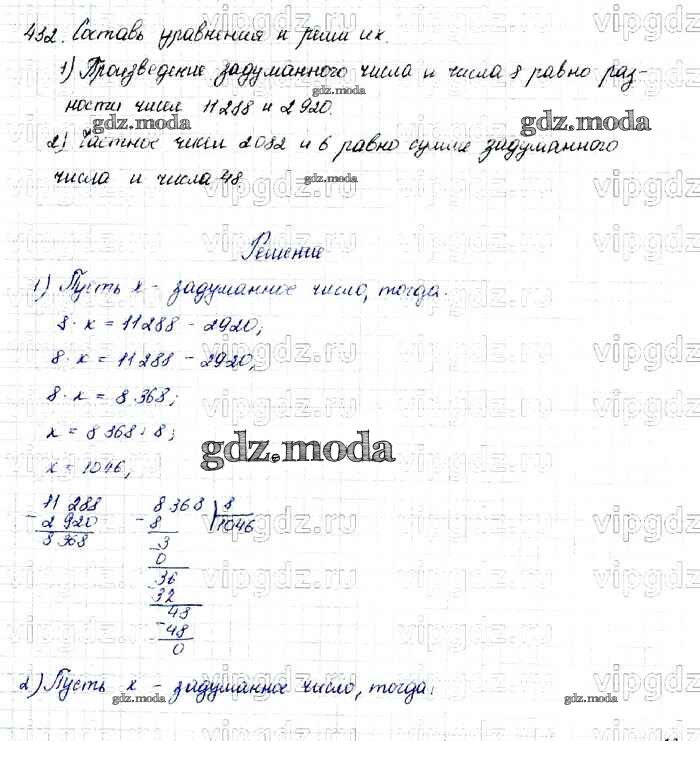 432. Составь уравнения и реши их.
1) Произведение задуманного числа и числа 8 равно раз-
ности чисел 11288 и 2920.
2) Частное чисел 2082 и 6 равно сумме задуманного
числа и числа 48.
Решение
1) Пусть x - задуманное число, тогда:
8 · x = 11288 - 2920;
8 · x = 11288 - 2920;
8 · x = 8368;
x = 8368 : 8;
x = 1046;
11 288
- 2 920
8 368
8368 | 8
- 8 | 1046
- 3
0
- 36
32
- 48
48
0
2) Пусть x - задуманное число, тогда:
gdz.moda
vipgdz.ru